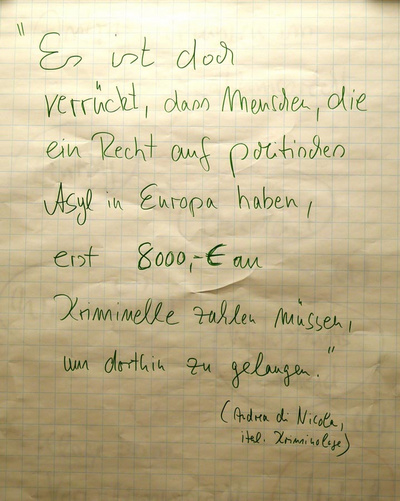 "Es ist doch
verrückt, dass Menschen, die
ein Recht auf politisches
Asyl in Europa haben,
erst 8000,-€ an
Kriminelle zahlen müssen,
um dorthin zu gelangen."
(Andrea di Nicola,
ital. Kriminologe)